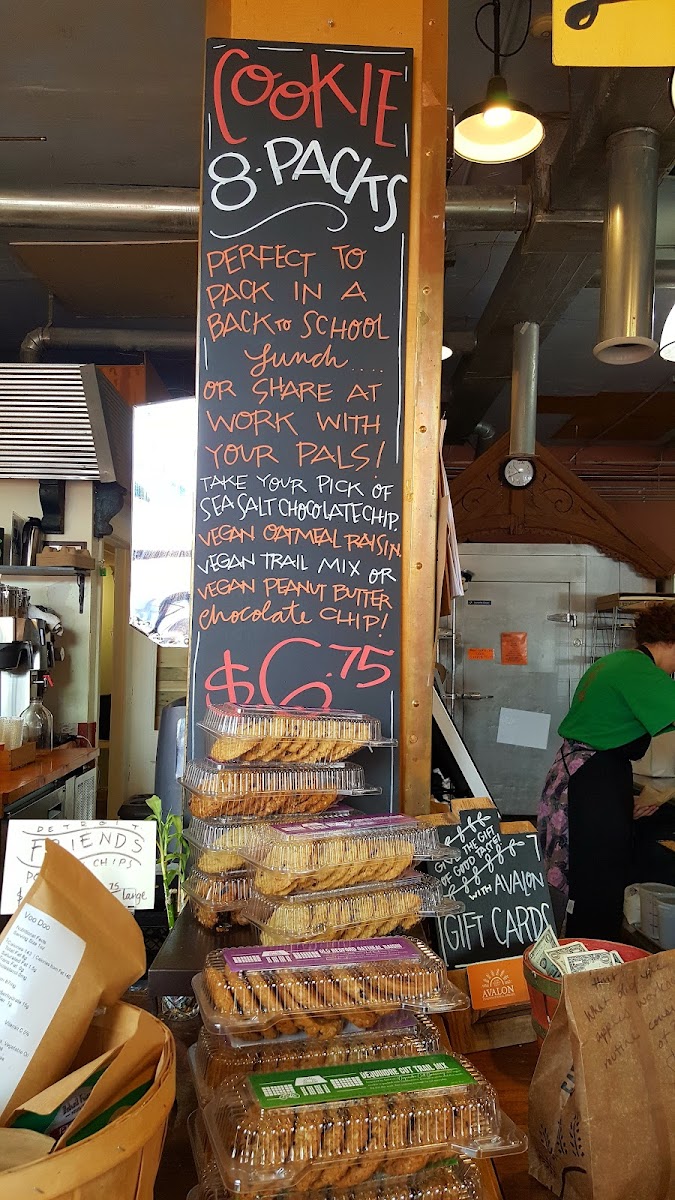 COOKIE
8-PACKS
PERFECT TO
PACK IN A
BACK to SCHOOL
lunch.....
OR SHARE AT
WORK WITH
YOUR PALS!
TAKE YOUR PICK OF
SEA SALT CHOCOLATE CHIP,
VEGAN OATMEAL RAISIN
VEGAN TRAIL MIX OR
VEGAN PEANUT BUTTER
chocolate CHIP!
$6.75
DETROIT
FRIENDS
CHIPS
75
large
Voo Doo
Nutritional Facts
GIVE THE GIFT
OF GOOD TASTE!
WITH AVALON
GIFT CARDS
AVALON
OLD REDFORD OATMEAL RAISIN
DEQUINDRE CUT TRAIL MIX